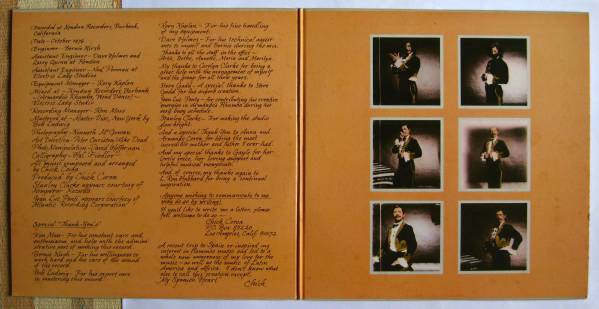 Recorded at Kendun Recorders, Burbank,
California
Date - October 1976
Engineer - Bernie Kirsh
Assistant Engineer - Dave Holmes and
Larry at Kendun
Assistant Engineer - at
Electric Lady Studios
Equipment Manager - Rory Kaplan
Mixed at - Kendun Recorders, Burbank
Electric Lady Studio
Recording Manager - Ron Moss
Mastered at - Master Disc, New York by
Bob Ludwig
Photography - Kenneth McGowan
Art Direction -
Photo Manipulation - David Heffernan
Calligraphy - Hal Fiedler
All music composed and arranged
by Chick Corea
Produced by Chick Corea
Stanley Clarke appears courtesy of
Nemperor Records
Jean Luc Ponty appears courtesy of
Atlantic Recording Corporation
Special "Thank-You's"
Ron Moss - For his constant care and
enthusiasm and help with the admini-
strative part of making this record.
Bernie Kirsh - For his willingness to
work hard and the care of the sound
of the record.
Bob Ludwig - For his expert care
in mastering this record.
Rory Kaplan - For his fine handling
of my equipment.
Dave Holmes - For his technical assist-
ance to myself and Bernie during the mix.
Thanks to all the staff in the office -
Arte, Bethe, Maria and Marilyn
My thanks to Carolyn Clarke for being a
great help with the management of myself
and the group for all these years.
Steve Gadd - A special thanks to Steve
Gadd for his superb creation.
Jean Luc Ponty - for contributing his creative
energies to Armando's Rhumba during his
very busy schedule.
Stanley Clarke - For making the studio
glow bright.
And a special Thank You to Anna and
Armando Corea for being the most
incredible mother and father I ever had.
And my special thanks to Gayle for her
lovely voice, her loving support and
helpful musical viewpoints.
And of course my thanks again to
L. Ron Hubbard for being a continual
inspiration.
Anyone wishing to communicate to me
may do so by writing:
If you'd like to write me a letter, please
feel welcome to do so -
Chick Corea
P.O. Box
Los Angeles, Calif.
A recent trip to Spain re-inspired my
interest in Flamenco music and led to a
whole new awareness of my love for the
music - as well as the music of Latin
America and Africa. I don't know what
else to call this creation except,
My Spanish Heart
Chick